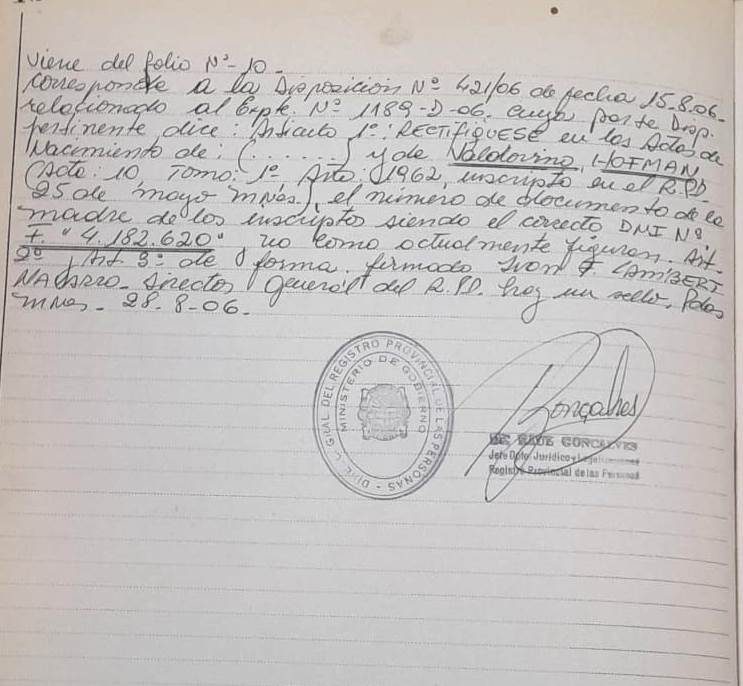 Viene del folio Nº 10 -
Corresponde a la Disposición Nº 421/06 de fecha 15-8-06-
relacionado al Expte. Nº 1189-D-06. cuya parte Disp.
pertinente dice: Artículo 1º: RECTIFIQUESE en las Actas de
Nacimiento de: (......) y de Valdovino, HOFMAN
(Acta: 10, Tomo: 1º Año: 1962, inscripto en el R.P.D.
25 de mayo Mnes.), el número de documento de la
madre de los inscriptos siendo el correcto DNI Nº
F. "4.182.620" no como actualmente figuran. Art.
2º, Art. 3º de forma. firmado Ivon F. LAMBERT
NAVARRO - Director General del R.P.D. hay un sello. Pdas
Mnes - 28-8-06.
DIRE. GRAL DEL REGISTRO PROVINCIAL DE LAS PERSONAS
MINISTERIO DE GOBIERNO
Gonçalves
GONCALVES
Jefe Dpto. Jurídico y
Registro Provincial de las Personas